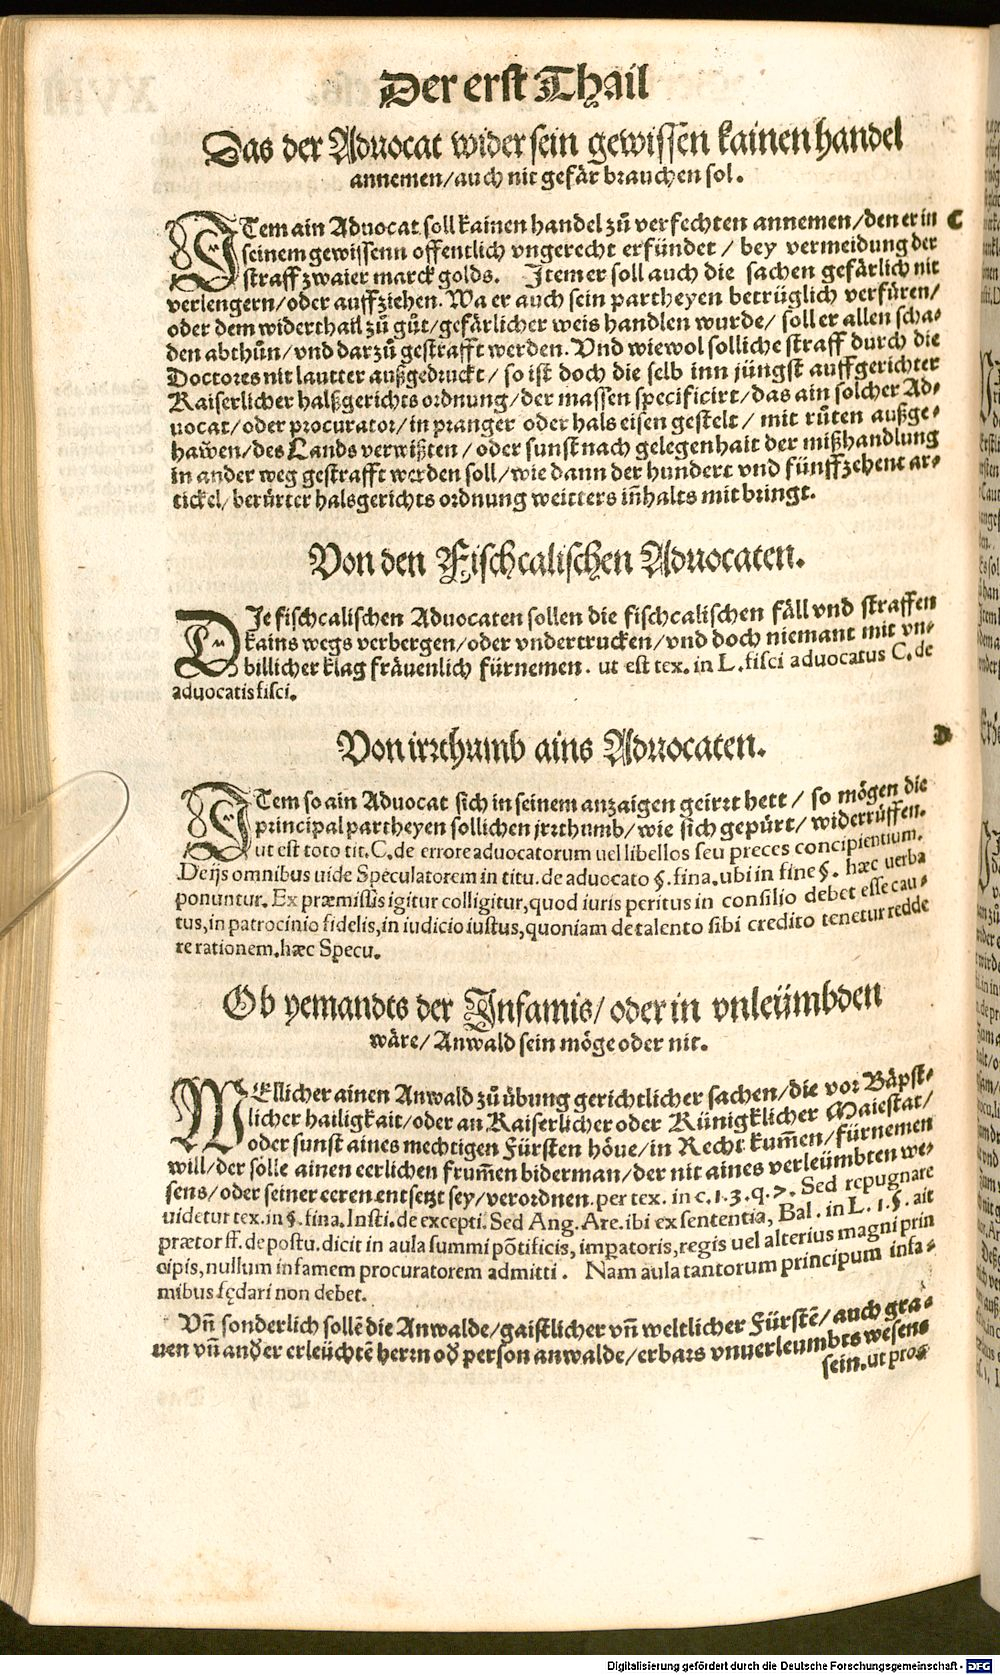 Der erst Thail
Das der Aduocat wider sein gewissen kainen handel
annemen/auch nit gefär brauchen sol.
ITem ain Aduocat soll kainen handel zů verfechten annemen/den er in C
seinem gewissenn offentlich vngerecht erfündet / bey vermeidung der
straff zwaier marck golds. Item er soll auch die sachen gefärlich nit
verlengern/oder auffziehen. Wa er auch sein partheyen betrüglich verfüren/
oder dem widerthail zů gůt/gefärlicher weis handlen wurde/ soll er allen scha-
den abthůn/vnd darzů gestrafft werden. Vnd wiewol solliche straff durch die
Doctores nit lautter außgedruckt/ so ist doch die selb inn jüngst auffgerichter
Kaiserlicher halßgerichts ordnung/der massen specificirt/das ain solcher Ad-
uocat/oder procurator/in pranger oder hals eisen gestelt / mit růten außge-
haw̃en/des Lands verwißten/oder sunst nach gelegenhait der mißhandlung
in ander weg gestrafft werden soll/wie dann der hundert vnd fünffzehent ar-
tickel/berürter halsgerichts ordnung weitters iñhalts mit bringt.
Von den Fischcalischen Aduocaten.
DIe fischcalischen Aduocaten sollen die fischcalischen fäll vnd straffen
kains wegs verbergen/oder vndertrucken/vnd doch niemant mit vn-
billicher klag fräuenlich fürnemen. ut est tex. in L. fisci aduocatus C. de
aduocatis fisci.
Von irrthumb ains Aduocaten. D
ITem so ain Aduocat sich in seinem anzaigen geirrt hett / so mögen die
principal partheyen sollichen jrrthumb/wie sich gepürt/widerrůffen.
ut est toto tit. C. de errore aduocatorum uel libellos seu preces concipientium.
De ijs omnibus uide Speculatorem in titu. de aduocato §. fina. ubi in fine §. hæc uerba
ponuntur. Ex præmissis igitur colligitur, quod iuris peritus in consilio debet esse cau-
tus, in patrocinio fidelis, in iudicio iustus, quoniam de talento sibi credito tenetur redde
re rationem. hæc Specu.
Ob yemandts der Infamis/oder in vnleümbden
wäre/Anwald sein möge oder nit.
WEllicher ainen Anwald zů übung gerichtlicher sachen/die vor Bäpst-
licher hailigkait/oder an Kaiserlicher oder Künigklicher Maiestat/
oder sunst aines mechtigen Fürsten höue/in Recht kum̃en/fürnemen
will/der sölle ainen eerlichen frum̃en biderman/der nit aines verleümbten we-
sens/oder seiner eeren entsetzt sey/verordnen. per tex. in c. 1. 3. q. 7. Sed repugnare
uidetur tex. in §. fina. Insti. de excepti. Sed Ang. Are. ibi ex sententia, Bal. in L. 1. §. ait
prætor ff. de postu. dicit in aula summi põtificis, imperatoris, regis uel alterius magni prin
cipis, nullum infamem procuratorem admitti. Nam aula tantorum principum infa-
mibus fędari non debet.
Vñ sonderlich sollẽ die Anwalde/gaistlicher vñ weltlicher Fürstẽ/auch gra-
uen vñ and̃er erleüchtẽ herrn od̃ person anwalde/erbars vnuerleumbts wesens
sein. ut pro-
Digitalisierung gefördert durch die Deutsche Forschungsgemeinschaft - DFG